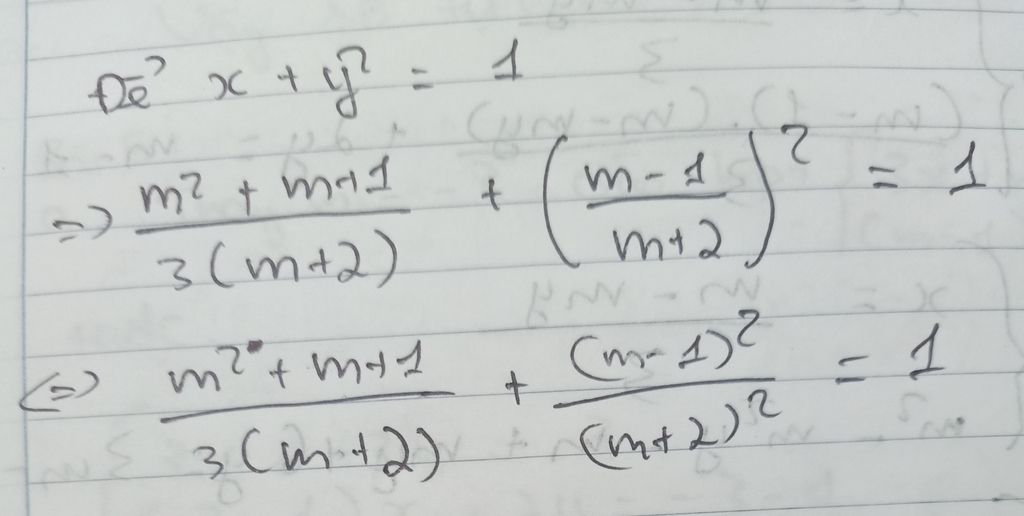 Để x + y² = 1
=> \frac{m² + m+1}{3(m+2)} + \left(\frac{m-1}{m+2}\right)² = 1
<=> \frac{m² + m+1}{3(m+2)} + \frac{(m-1)²}{(m+2)²} = 1